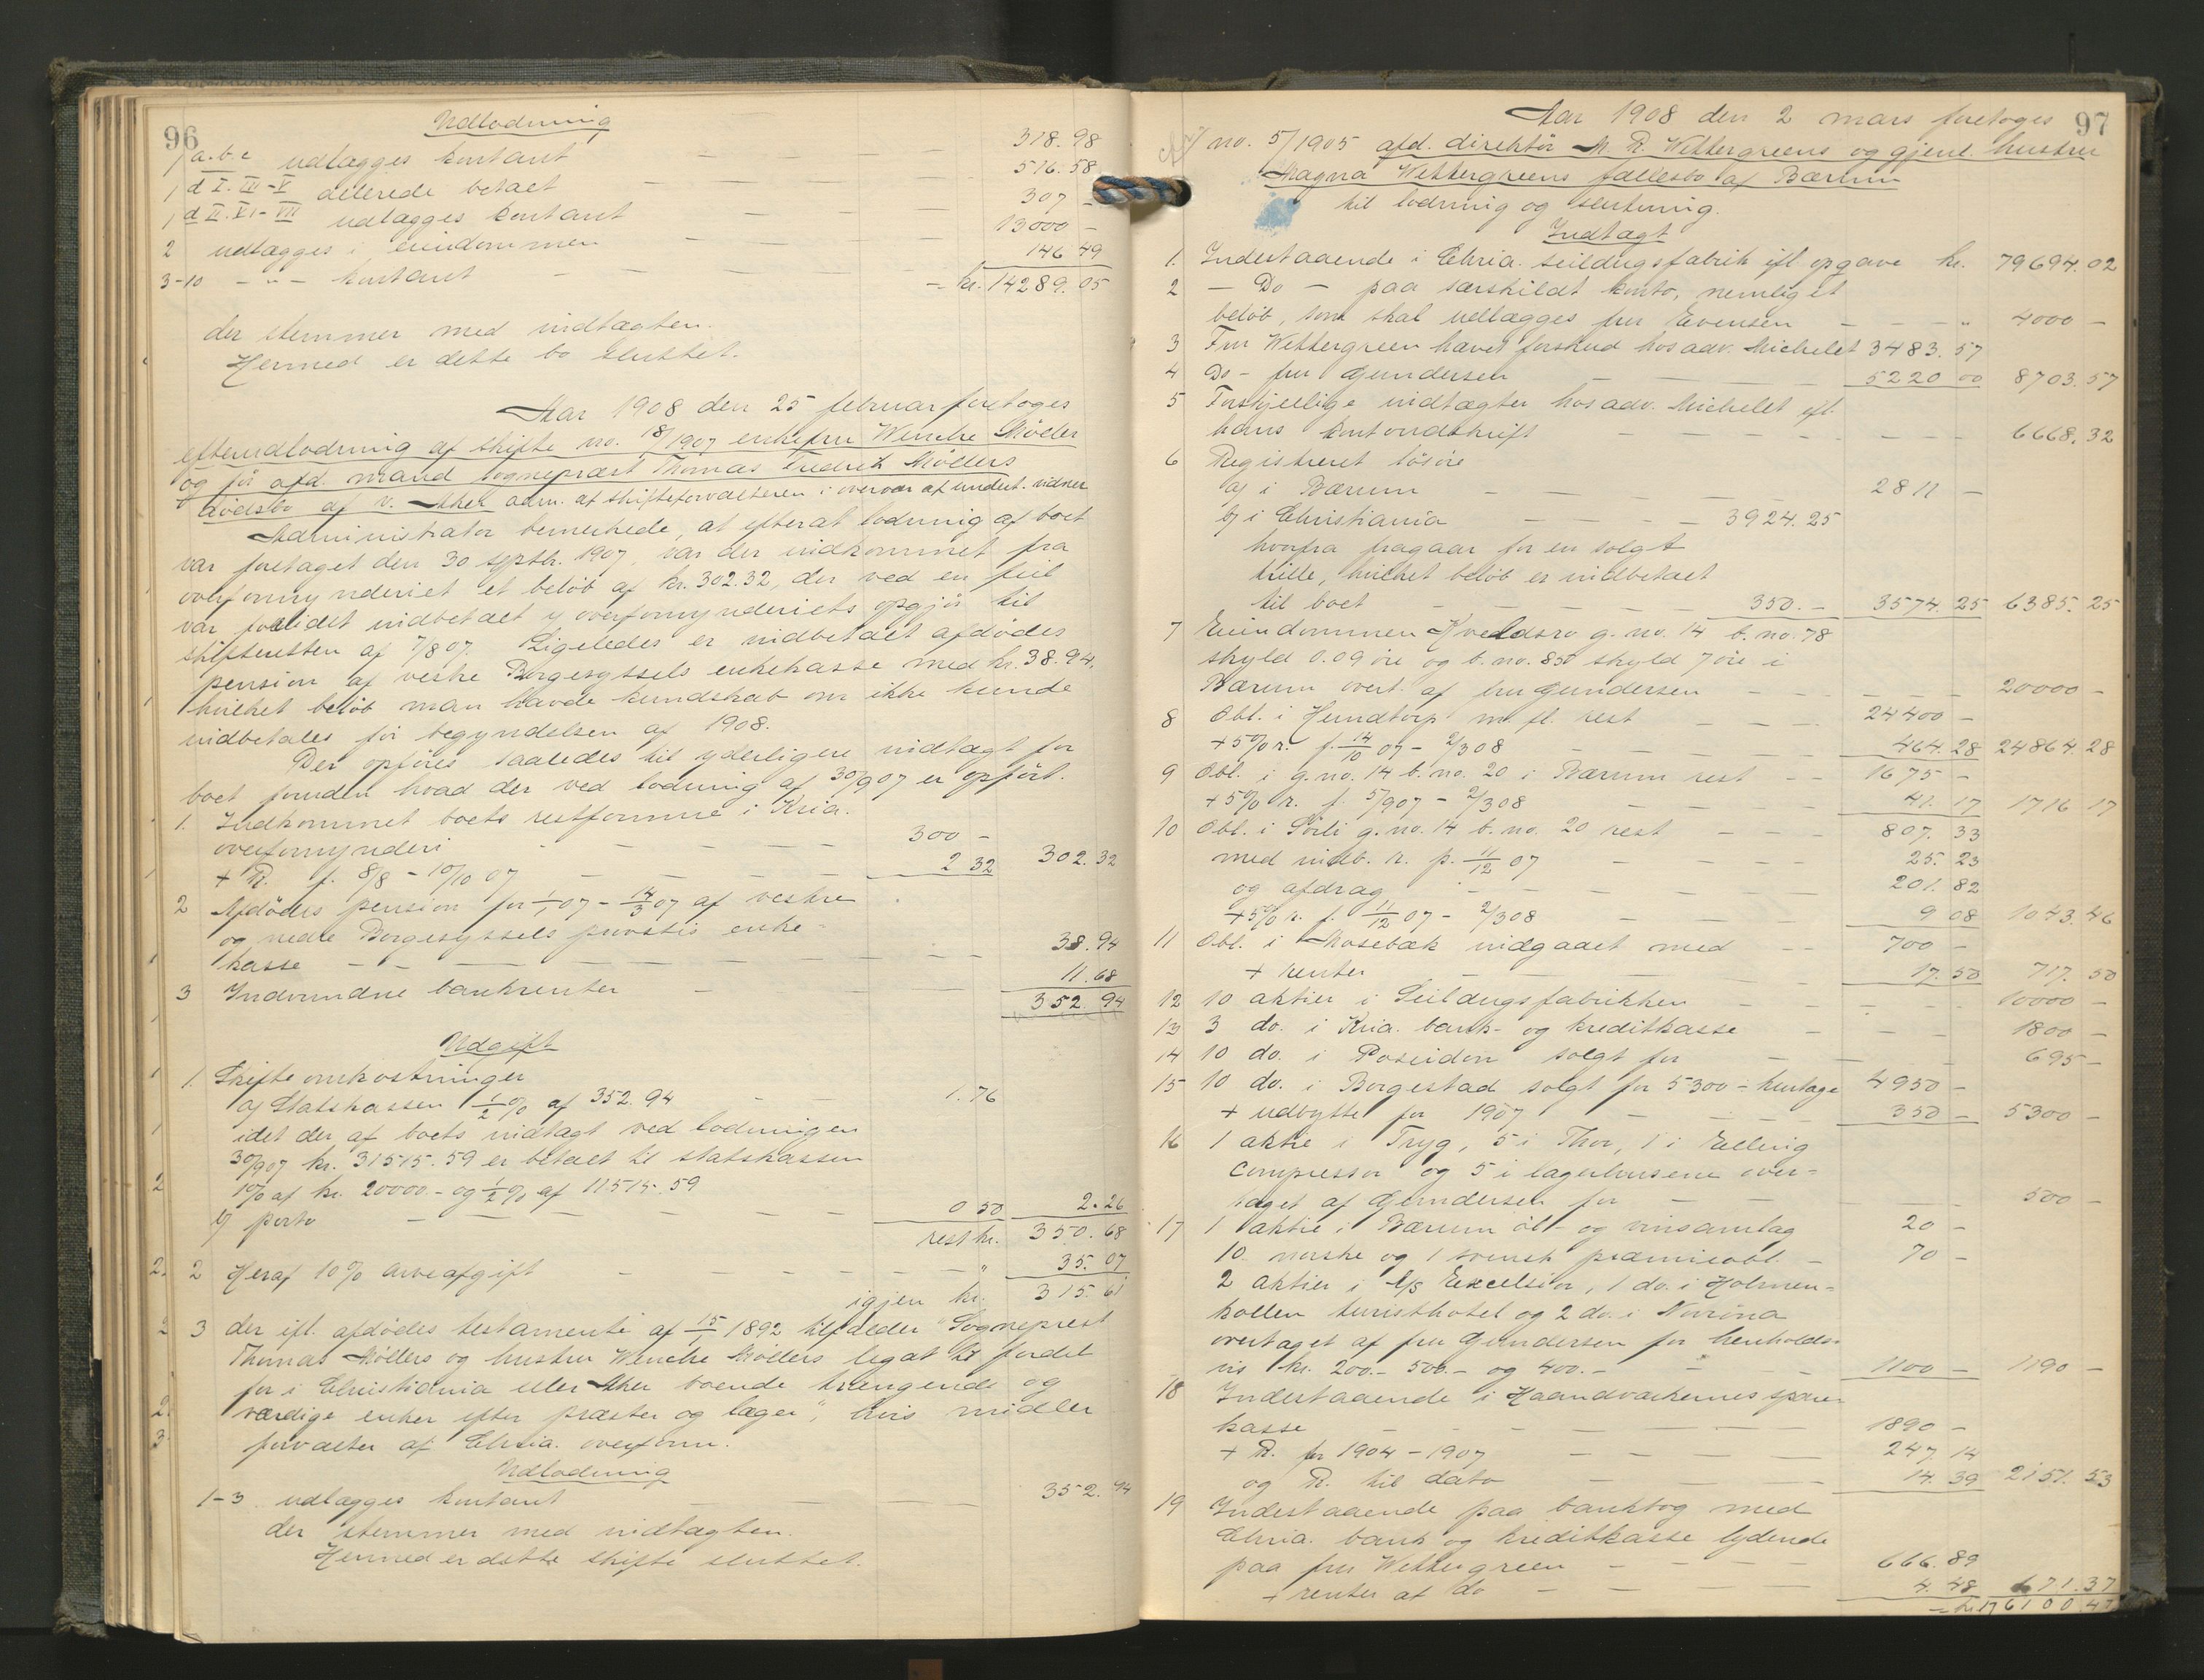 96
Udlodning
1 a.b.c udlægges kontant — — — 318.98
1 d I. III–V allerede betalt — — — 516.58
1 d II. VI–VII udlægges kontant — — — 307 –
2 udlægges i eiendommen — — — 13000 –
3–10 – " – kontant — — — 146 49
– kr. 14289.05
der stemmer med indtægten.
Hermed er dette bo sluttet.
Aar 1908 den 25 februar foretoges
efterudlodning af skifte no. 18/1907 enkefru Wenche Möller
og før afd. mand sognepræst Thomas Fredrik Möllers
dødsbo af v. Aker adm. af skifteforvalteren i overvær af undert. vidner
Administrator bemerkede, at efterat lodning af boet
var foretaget den 30 septbr. 1907, var der indkommet fra
overformynderiet et beløb af kr. 302.32, der ved en feil
var forlidet indbetalt ved overformynderiets opgjør til
skifteretten af 7/8 07. Ligeledes er indbetalt afdødes
pension af vestre Borgesyssels enkekasse med kr. 38.94,
hvilket beløb man havde kundskab om ikke kunde
indbetales før begyndelsen af 1908.
Der opføres saaledes til yderligere indtægt for
boet foruden hvad der ved lodning af 30/9 07 er opført.
1. Indkommet boets restformue i Kria.
overformynderi — — — 300 –
+ R. f. 8/8 – 10/10 07 — — — 2 32 302.32
2 Afdødes pension for 1/1 07 – 14/3 07 af vestre
og nedre Borgesyssels provstis enke-
kasse — — — 38.94
3 Indvundne bankrenter — — — 11.68
352.94
Udgift
1. Skifteomkostninger
a) Statskassen 1/2 % af 352.94 — — 1.76
idet der af boets indtægt ved lodningen
30/9 07 kr. 31515.59 er betalt til statskassen
1% af kr. 20000.– og 1/2 % af 11515.59
b) porto — — — 0 50 2.26
rest kr. 350.68
2 Heraf 10% arveafgift — — — " 35.07
igjen kr. 315.61
3 der ifl. afdødes testamente af 15/1 1892 tilfalder "Sogneprest
Thomas Møllers og hustru Wenche Møllers legat til fordel
for i Christiania eller Aker boende trængende og
værdige enker efter præster og læger", hvis midler
forvaltes af Chria. overform.
Udlodning
1–3 udlægges kontant — — — 352.94
der stemmer med indtægten.
Hermed er dette skifte sluttet.
97
Aar 1908 den 2 mars foretoges
no. 5/1905 afd. direktør M R. Wettergreens og gjenl. hustru
Magna Wettergreens fællesbo af Bærum
til lodning og slutning.
Indtægt
1. Indestaaende i Chria. seildugsfabrik ifl. opgave kr. 79694.02
2 – Do – paa særskildt konto, nemlig et
beløb, som skal udlægges fru Evensen — — — " 4000 –
3 Fru Wettergreen hævet forskud hos adv. Michelet 3483.57
4 Do – fru Gundersen — — 5220 00 8703.57
5 Forskjellige indtægter hos adv. Michelet ifl.
hans kontoudskrift — — — 6668.32
6 Registreret løsøre
a) i Bærum — — — 2811 –
b) i Christiania — — — 3924.25
hvorfra fragaar for en solgt
trille, hvilket beløb er indbetalt
til boet — — — 350.– 3574.25 6385.25
7 Eiendommen Kveldsro g. no. 14 b. no. 78
skyld 0.09 øre og b. no. 850 skyld 7 øre i
Bærum overt. af fru Gundersen — — — 20000 –
8 Obl. i Hundtorp m. fl. rest — — — 24400 –
+ 5% r. f. 14/10 07 – 2/3 08 — — 464.28 24864.28
9 Obl. i g. no. 14 b. no. 20 i Bærum rest — — 1675 –
+ 5% r. f. 5/9 07 – 2/3 08 — — 41.17 1716 17
10 Obl. i Sörli g. no. 14 b. no. 20 rest — — 807.33
med indb. r. p. 11/12 07 — — 25.23
og afdrag — — — 201.82
+ 5% r. f. 11/12 07 – 2/3 08 — — 9 08 1043.46
11 Obl. i Mosebæk indgaaet med — 700 –
+ renter — — 17.50 717.50
12 10 aktier i Seildugsfabrikken — — — 10000 –
13 3 do. i Kria. bank- og kreditkasse — — 1800 –
14 10 do. i Poseidon solgt for — — — 695 –
15 10 do. i Borgestad solgt for 5300 – 4950 –
+ udbytte for 1907 — — 350 – 5300 –
16 1 aktie i Tryg, 5 i Thor, 1 i
Compressor og 5 i lagerhusene over-
taget af Gundersen for — — — 500 –
17 1 aktie i Bærum øl- og vinsamlag 20 –
10 norske og 1 svensk præmieobl. – 70 –
2 aktier i A/S Excelsior, 1 do. i Holmen-
kollen turisthotel og 2 do. i Norröna
overtaget af fru Gundersen for henholds-
vis kr. 200.– 500.– og 400.– — 1100 – 1190 –
18 Indestaaende i Haandværkernes spare-
kasse — — — 1890 –
+ R. for 1904 – 1907 — — 247.14
og R. til dato — — 14.39 2151.53
19 Indestaaende paa banktog med
Chria. bank og kreditkasse lydende
paa fru Wettergreen — — 666.89
+ renter at do — — 4.48 671.37
= kr. 176100 47